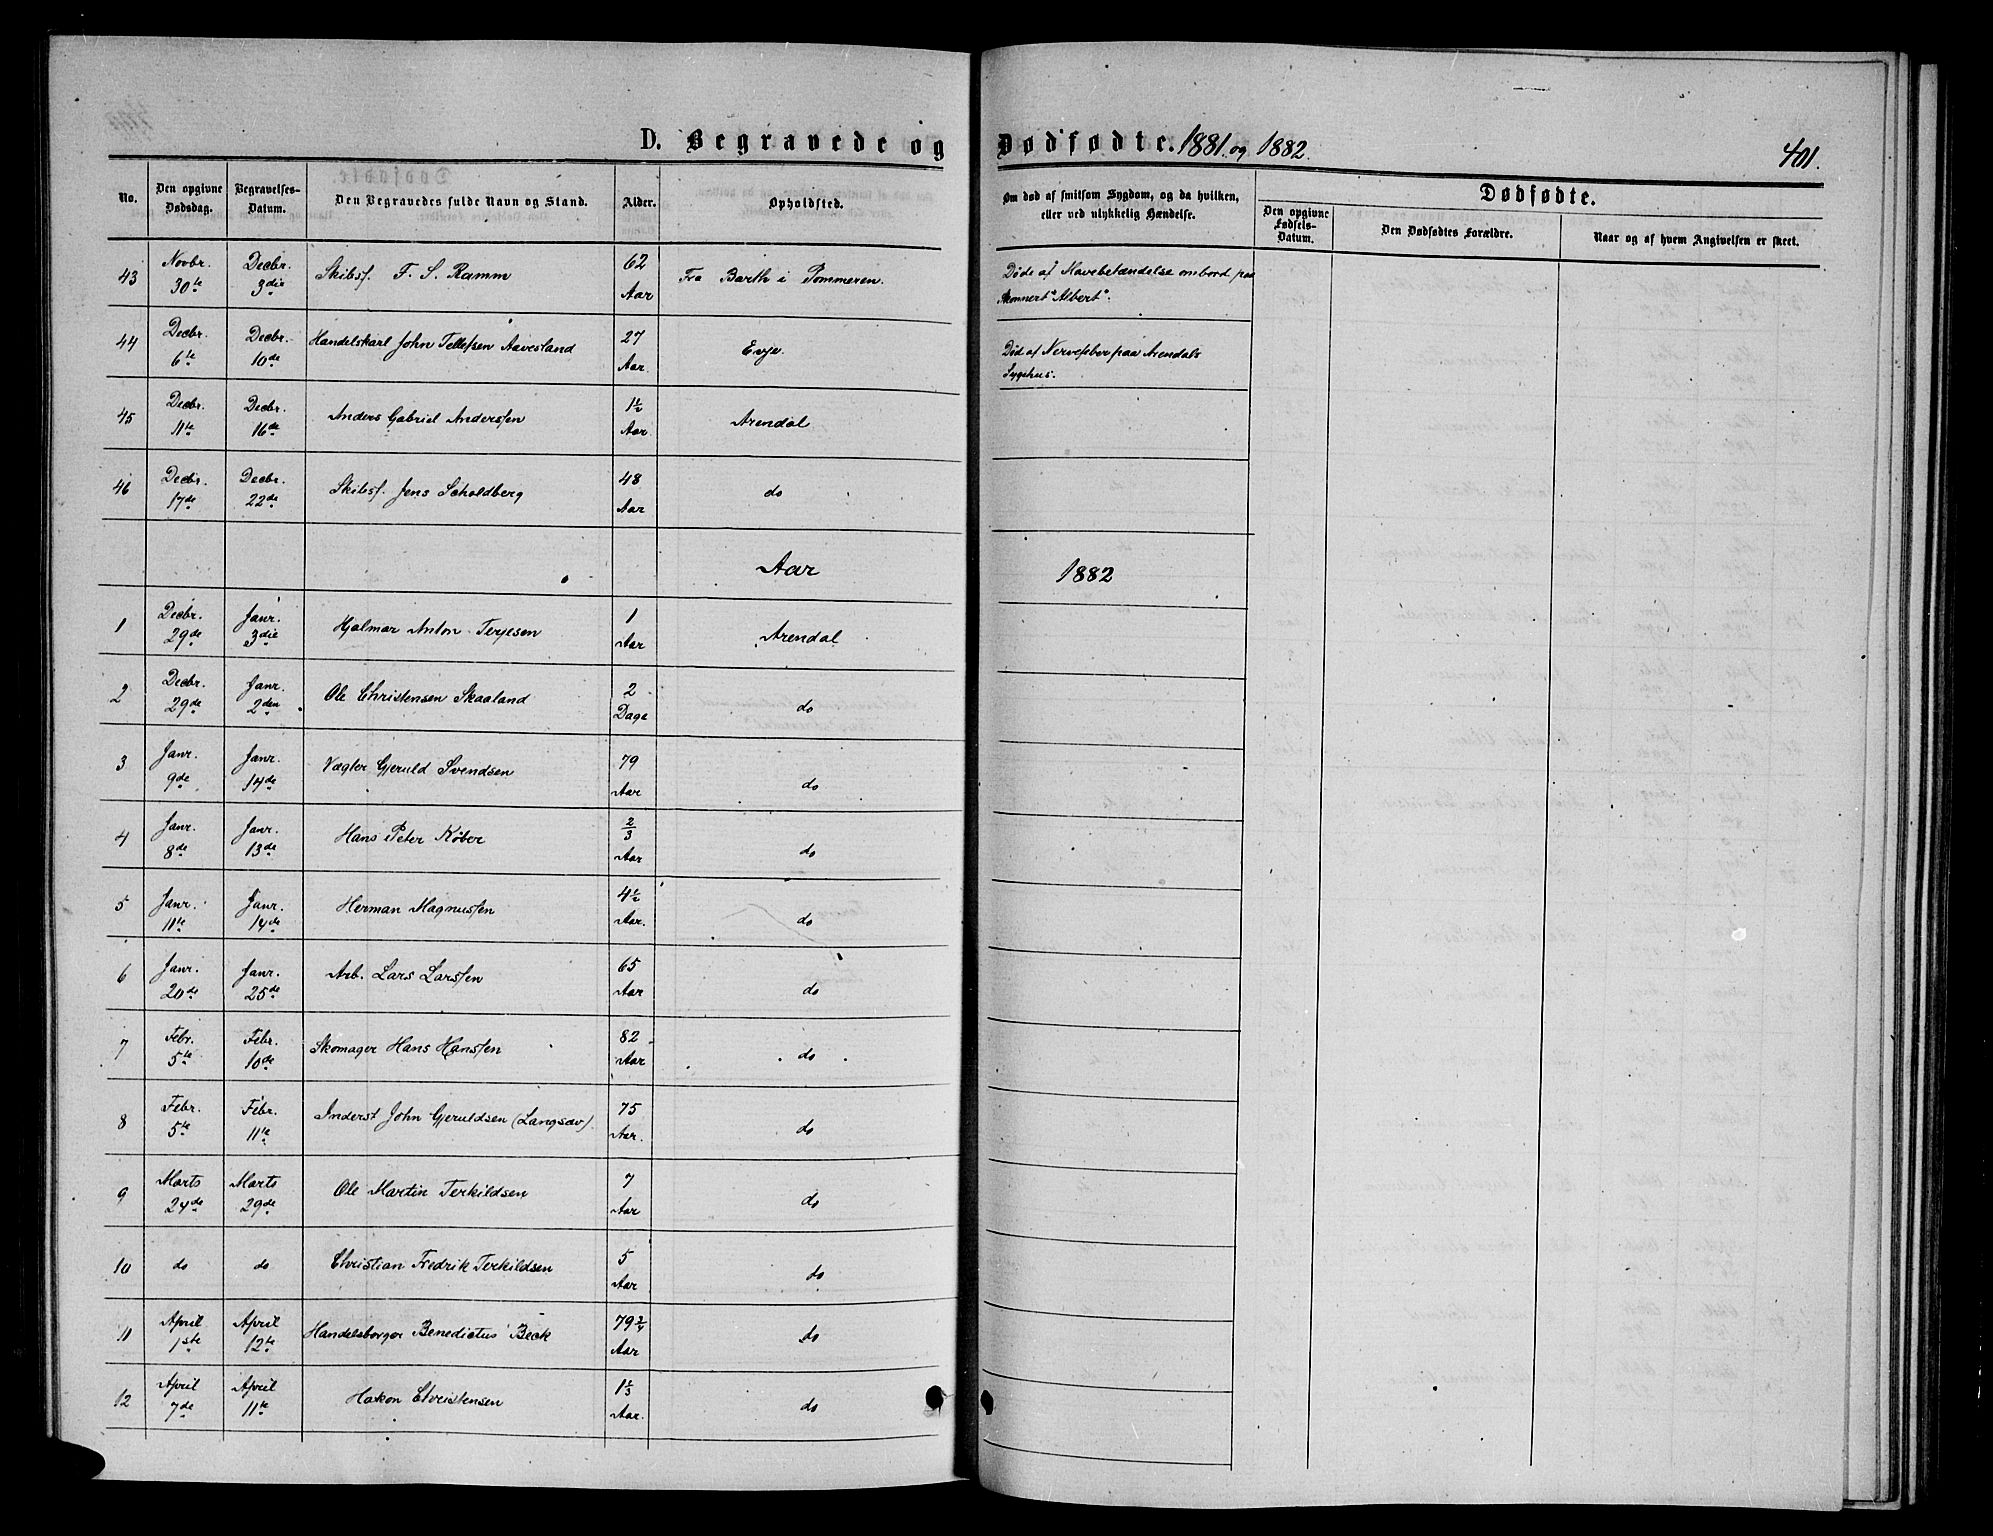 D. Begravede og Dødfødte. 1881 og 1882. 401.
No. Den opgivne Dødsdag. Begravelses-Datum. Den Begravedes fulde Navn og Stand. Alder. Opholdssted. Om død af smitsom Sygdom, og da hvilken, eller ved ulykkelig Hændelse. Dødfødte.
Den opgivne Fødsels-Datum. Den Dødfødtes Forældre. Naar og af hvem Angivelsen er skeet.
43 Novbr. 30te Decbr. 3die Skibsf. F. S. Ramm 62 Aar Fra Barth i Pommeren. Døde af Mavebetændelse ombord paa
Skonnert "Albert".
44 Decbr. 6te Decbr. 10de Handelskarl John Tellefsen Aavesland 27 Aar. Evje. Død af Nervefeber paa Arendals
Sygehus.
45 Decbr. 11te Decbr. 16de Anders Gabriel Anderssen 1½ Aar Arendal
46 Decbr. 17de Decbr. 22de Skibsf. Jens Scholdberg 48 Aar do
Aar 1882
1 Decbr. 29de Janr. 3die Hjalmar Anton Terjesen 1 Aar Arendal
2 Decbr. 29de Janr. 2den Ole Christensen Skaaland 2 Dage do
3 Janr. 9de Janr. 14de Vægter Gjeruld Svendsen 79 Aar do
4 Janr. 8de Janr. 13de Hans Peter Nøber 2/3 Aar do
5 Janr. 11te Janr. 14de Herman Magnussen 4½ Aar. do
6 Janr. 20de Janr. 25de Arb. Lars Larssen 65 Aar do
7 Febr. 5te Febr. 10de Skomager Hans Hanssen 82 Aar do
8 Febr. 5te Febr. 11te Inderst John Gjeruldsen (Langsæv). 75 Aar. do
9 Marts 24de Marts 29de Ole Martin Terkildsen 7 Aar do
10 do do Christian Fredrik Terkildsen 5 Aar do
11 April 1ste April 12te Handelsborger Benedictus Beck 79¾ Aar do
12 April 7de April 11te Hakon Christensen 1⅓ Aar. do